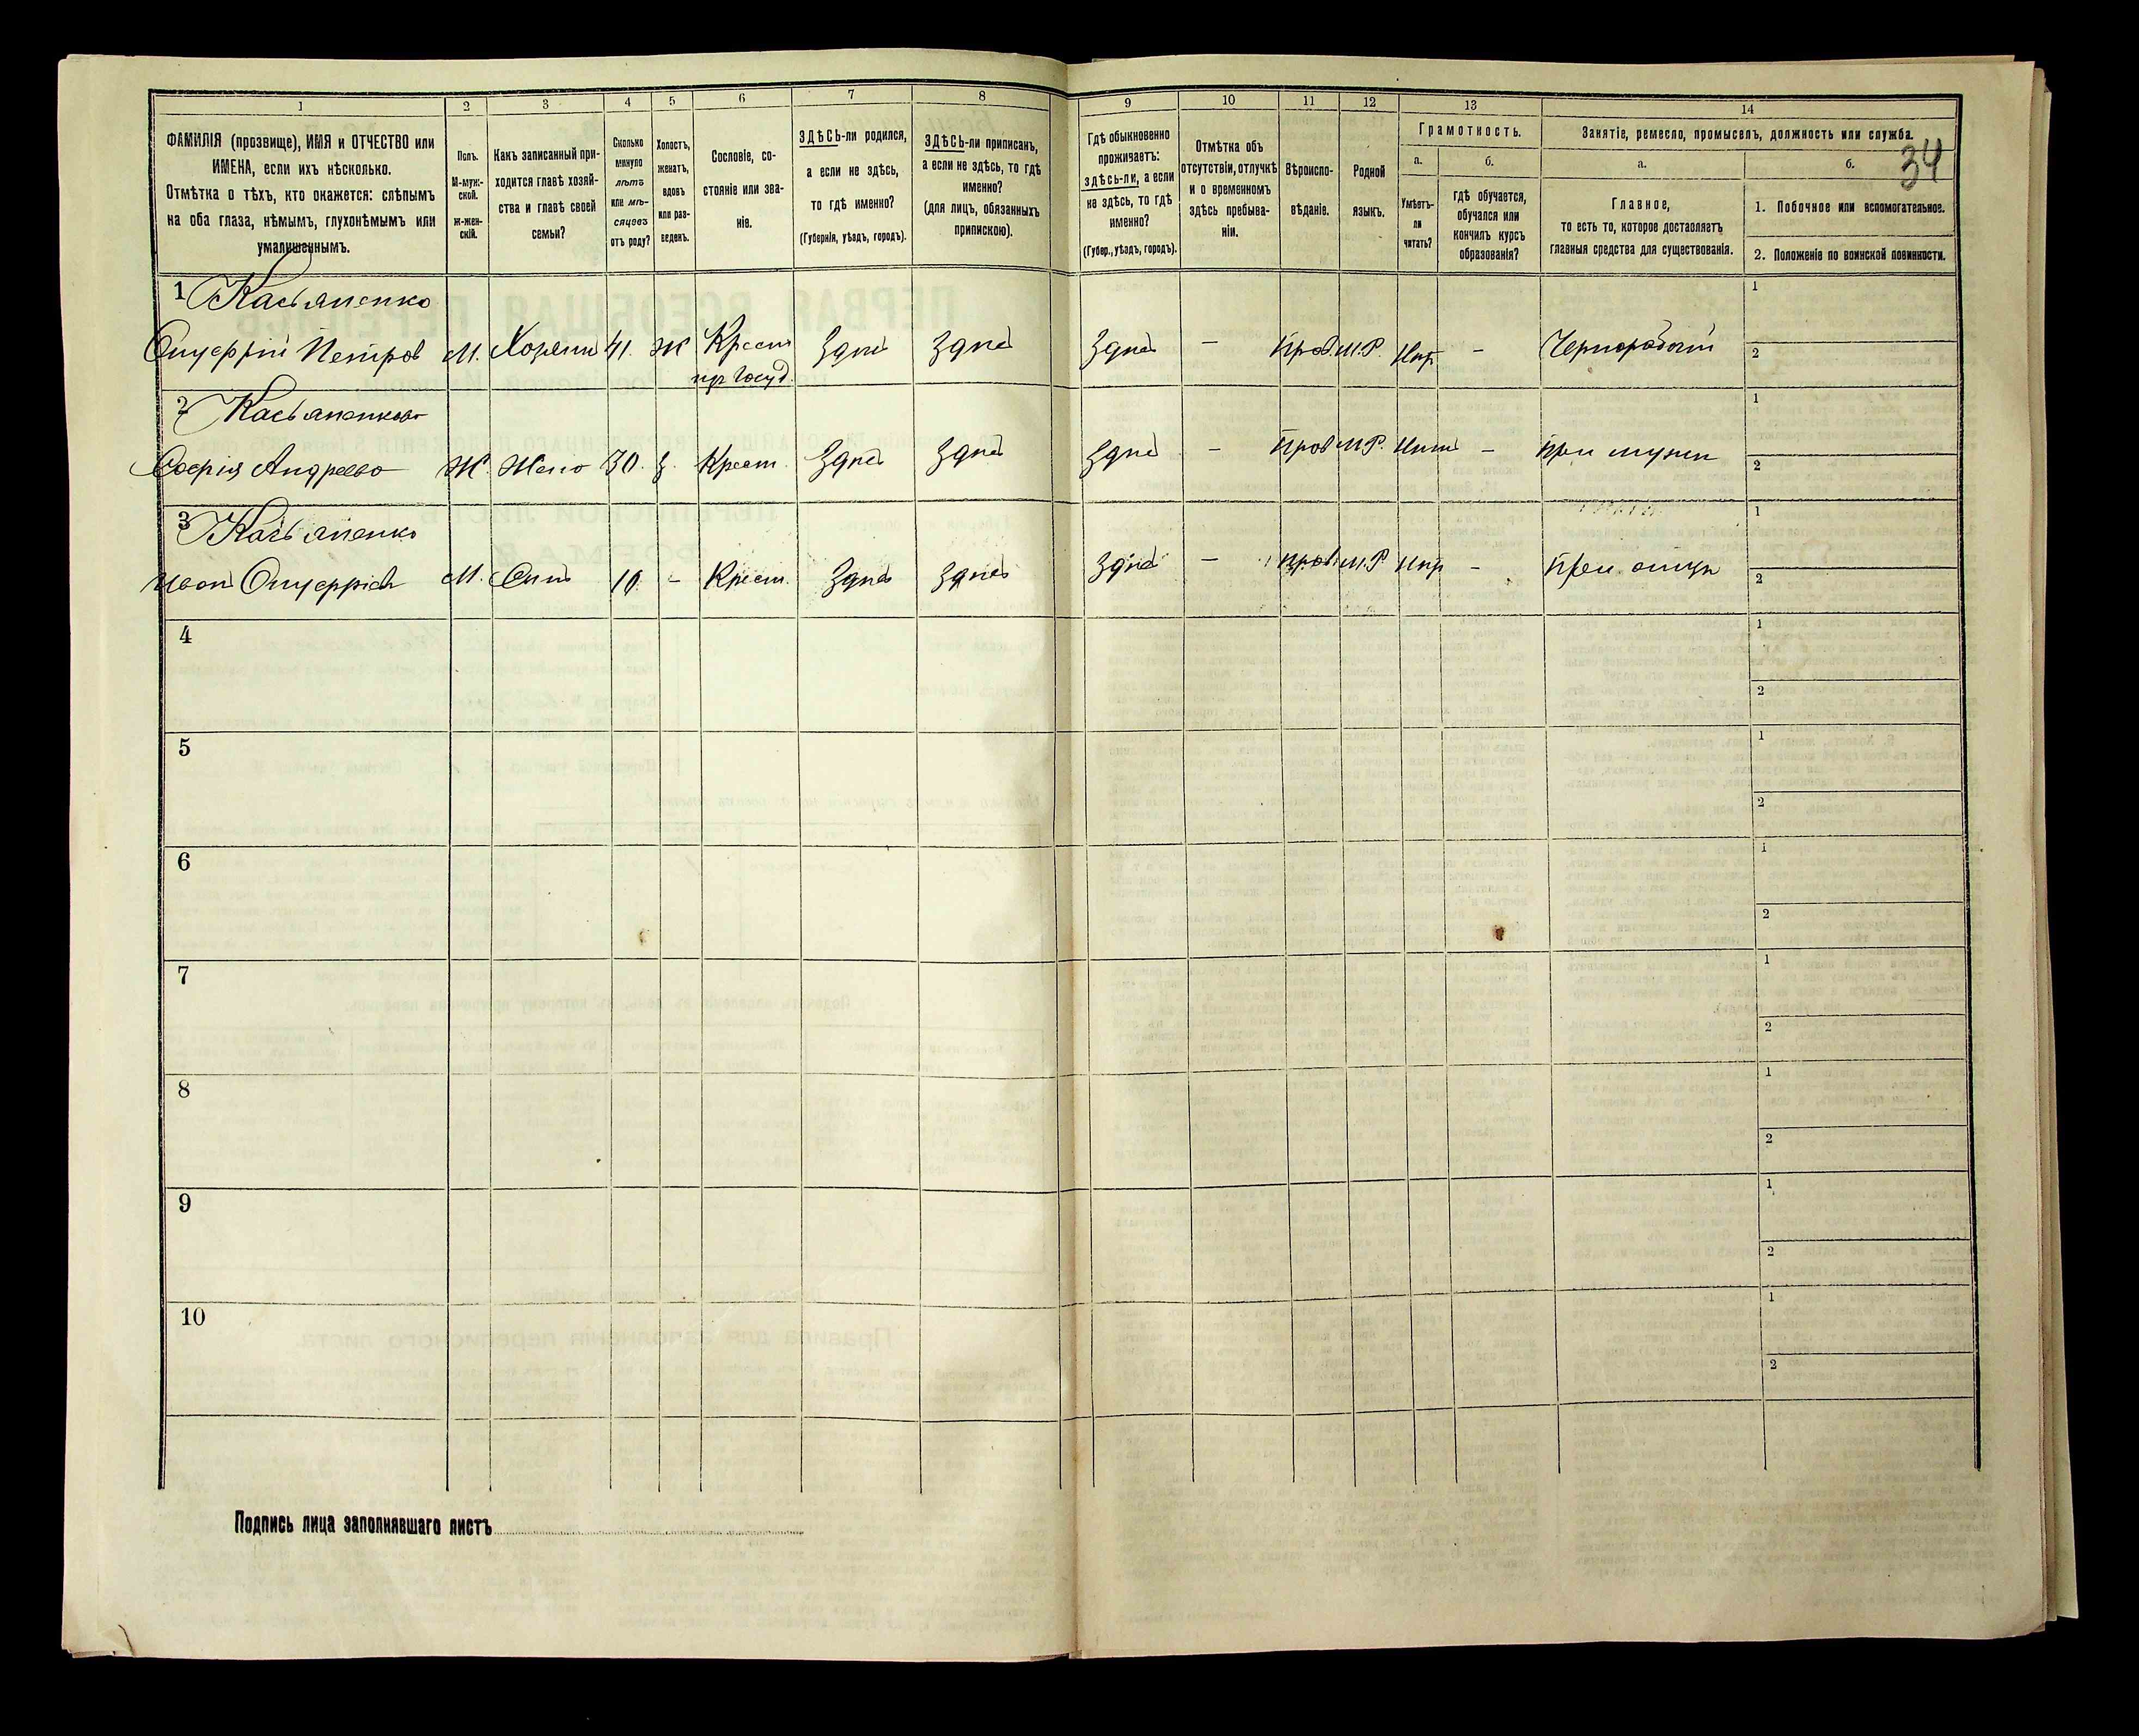 1 2 3 4 5 6 7 8 9 10 11 12 13 14
ФАМИЛІЯ (прозвище), ИМЯ и ОТЧЕСТВО или
ИМЕНА, если ихъ нѣсколько.
Отмѣтка о тѣхъ, кто окажется: слѣпымъ
на оба глаза, нѣмымъ, глухонѣмымъ или
умалишеннымъ.
Полъ.
М-муж-
ской.
Ж-жен-
скій.
Какъ записанный при-
ходится главѣ хозяй-
ства и главѣ своей
семьи?
Сколько
минуло
лѣтъ
или мѣ-
сяцевъ
отъ роду?
Холостъ,
женатъ,
вдовъ
или раз-
веденъ.
Сословіе, со-
стояніе или зва-
ніе.
ЗДѢСЬ-ли родился,
а если не здѣсь,
то гдѣ именно?
(Губернія, уѣздъ, городъ).
ЗДѢСЬ-ли приписанъ,
а если не здѣсь, то гдѣ
именно?
(для лицъ, обязанныхъ
припискою).
Гдѣ обыкновенно
проживаетъ:
здѣсь-ли, а если
не здѣсь, то гдѣ
именно?
(Губер., уѣздъ, городъ).
Отмѣтка объ
отсутствіи, отлучкѣ
и о временномъ
здѣсь пребыва-
ніи.
Вѣроиспо-
вѣданіе.
Родной
языкъ.
Грамотность.
а.
Умѣетъ-
ли
читать?
б.
гдѣ обучается,
обучался или
кончилъ курсъ
образованія?
Занятіе, ремесло, промыселъ, должность или служба.
а.
Главное,
то есть то, которое доставляетъ
главныя средства для существованія.
б.
34
1. Побочное или вспомогательное.
2. Положеніе по воинской повинности.
1 Касьяненко 1
Онуфрій Петров М. Хозяинъ 41. Ж Крест Здѣсь Здѣсь Здѣсь - Прав. М.Р. Нѣт - Чернорабочій 2
2 Касьяненкова 1
Софія Андреева Ж. Жена 30. З. Крест. Здѣсь Здѣсь Здѣсь - Прав М.Р. Нѣтъ - При мужѣ 2
3 Касьяненко 1
Иванъ Онуфріевъ М. Сынъ 10. - Крест. Здѣсь Здѣсь Здѣсь - Прав. М.Р Нѣт - При отцѣ 2
4 1
2
5 1
2
6 1
2
7 1
2
8 1
2
9 1
2
10 1
2
Подпись лица заполнявшаго листъ